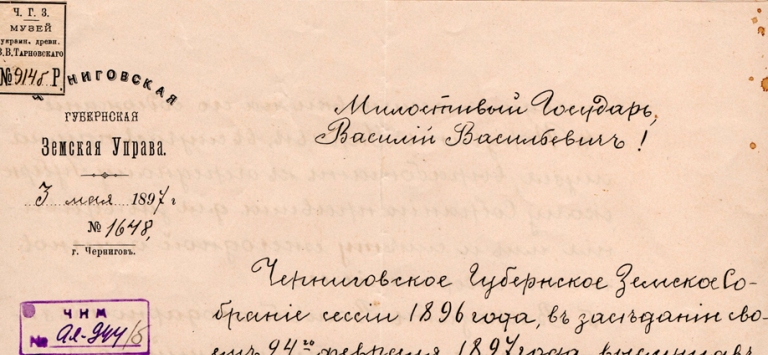 Ч. Г. З.
МУЗЕЙ
украин. древн.
В.В.Тарновскаго
№ 9146. Р.
ЧЕРНИГОВСКАЯ
ГУБЕРНСКАЯ
Земская Управа.
3 мая 1897 г
№ 1648,
г. Черниговъ.
Милостивый Государь,
Василій Васильевичъ!
Черниговское Губернское Земское Со-
браніе сессіи 1896 года, въ засѣданіи сво-
емъ 24го февраля 1897 года,
ЧНМ
№ Ал-944/5